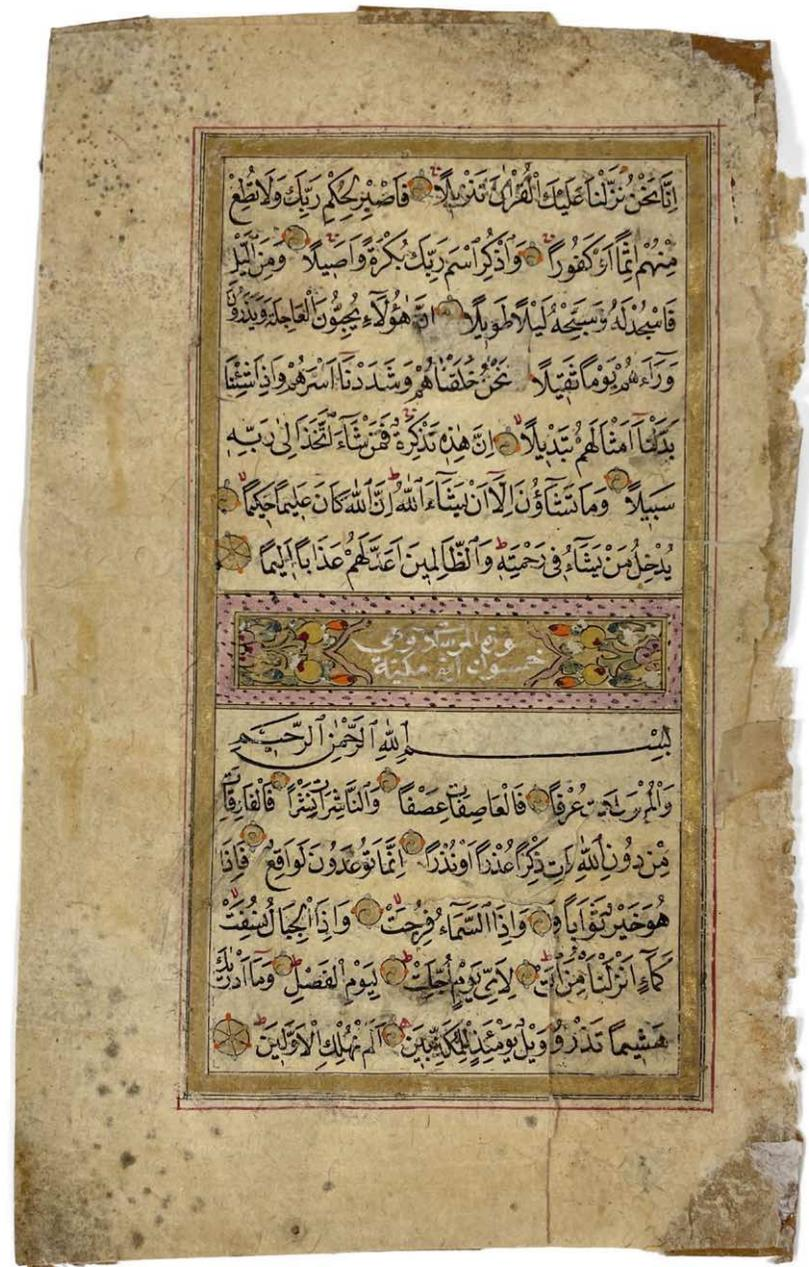 اِنَّا نَحْنُ نَزَّلْنَا عَلَيْكَ الْقُرْاٰنَ تَنْزِيلًا فَاصْبِرْ لِحُكْمِ رَبِّكَ وَلَا تُطِعْ
مِنْهُمْ اٰثِمًا اَوْ كَفُورًا وَاذْكُرِ اسْمَ رَبِّكَ بُكْرَةً وَاَصِيلًا وَمِنَ الَّيْلِ
فَاسْجُدْ لَهُ وَسَبِّحْهُ لَيْلًا طَوِيلًا اِنَّ هٰؤُلَاءِ يُحِبُّونَ الْعَاجِلَةَ وَيَذَرُونَ
وَرَاءَهُمْ يَوْمًا ثَقِيلًا نَحْنُ خَلَقْنَاهُمْ وَشَدَدْنَا اَسْرَهُمْ وَاِذَا شِئْنَا
بَدَّلْنَا اَمْثَالَهُمْ تَبْدِيلًا اِنَّ هٰذِهِ تَذْكِرَةٌ فَمَنْ شَاءَ اتَّخَذَ اِلٰى رَبِّهِ
سَبِيلًا وَمَا تَشَاؤُنَ اِلَّا اَنْ يَشَاءَ اللّٰهُ اِنَّ اللّٰهَ كَانَ عَلِيمًا حَكِيمًا
يُدْخِلُ مَنْ يَشَاءُ فِى رَحْمَتِهِ وَالظَّالِمِينَ اَعَدَّ لَهُمْ عَذَابًا اَلِيمًا
سورة المرسلات وهي
خمسون آية مكية
بِسْمِ اللّٰهِ الرَّحْمٰنِ الرَّحِيمِ
وَالْمُرْسَلَاتِ عُرْفًا فَالْعَاصِفَاتِ عَصْفًا وَالنَّاشِرَاتِ نَشْرًا فَالْفَارِقَاتِ
مِنْ دُونِ اللّٰهِ ذِكْرًا عُذْرًا اَوْ نُذْرًا اِنَّمَا تُوعَدُونَ لَوَاقِعٌ فَاِذَا
هُوَ خَيْرٌ ثَوَابًا وَ وَاِذَا السَّمَاءُ فُرِجَتْ وَاِذَا الْجِبَالُ نُسِفَتْ
كَمَاءٍ اَنْزَلْنَاهُ مِنَ لِاَىِّ يَوْمٍ اُجِّلَتْ لِيَوْمِ الْفَصْلِ وَمَا اَدْرٰيكَ
هَشِيمًا تَذْرُوهُ وَيْلٌ يَوْمَئِذٍ لِلْمُكَذِّبِينَ اَلَمْ نُهْلِكِ الْاَوَّلِينَ